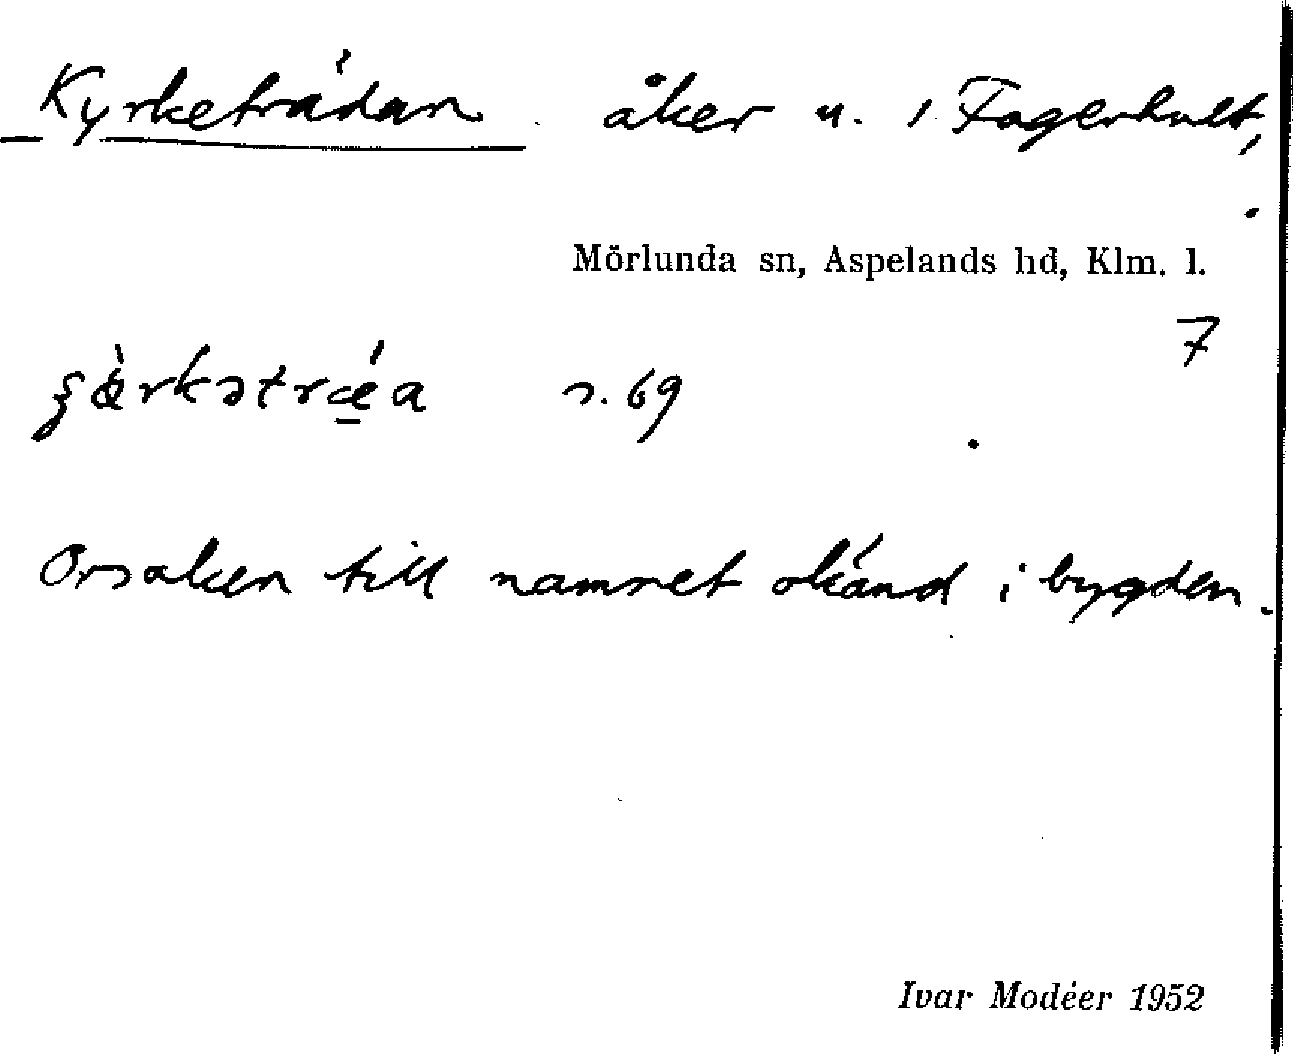 Kyrketrädan åker u. 1 Fagerhult,
Mörlunda sn, Aspelands hd, Klm. l.
7
s. 69
Orsaken till namnet okänd i bygden.
Ivar Modéer 1952